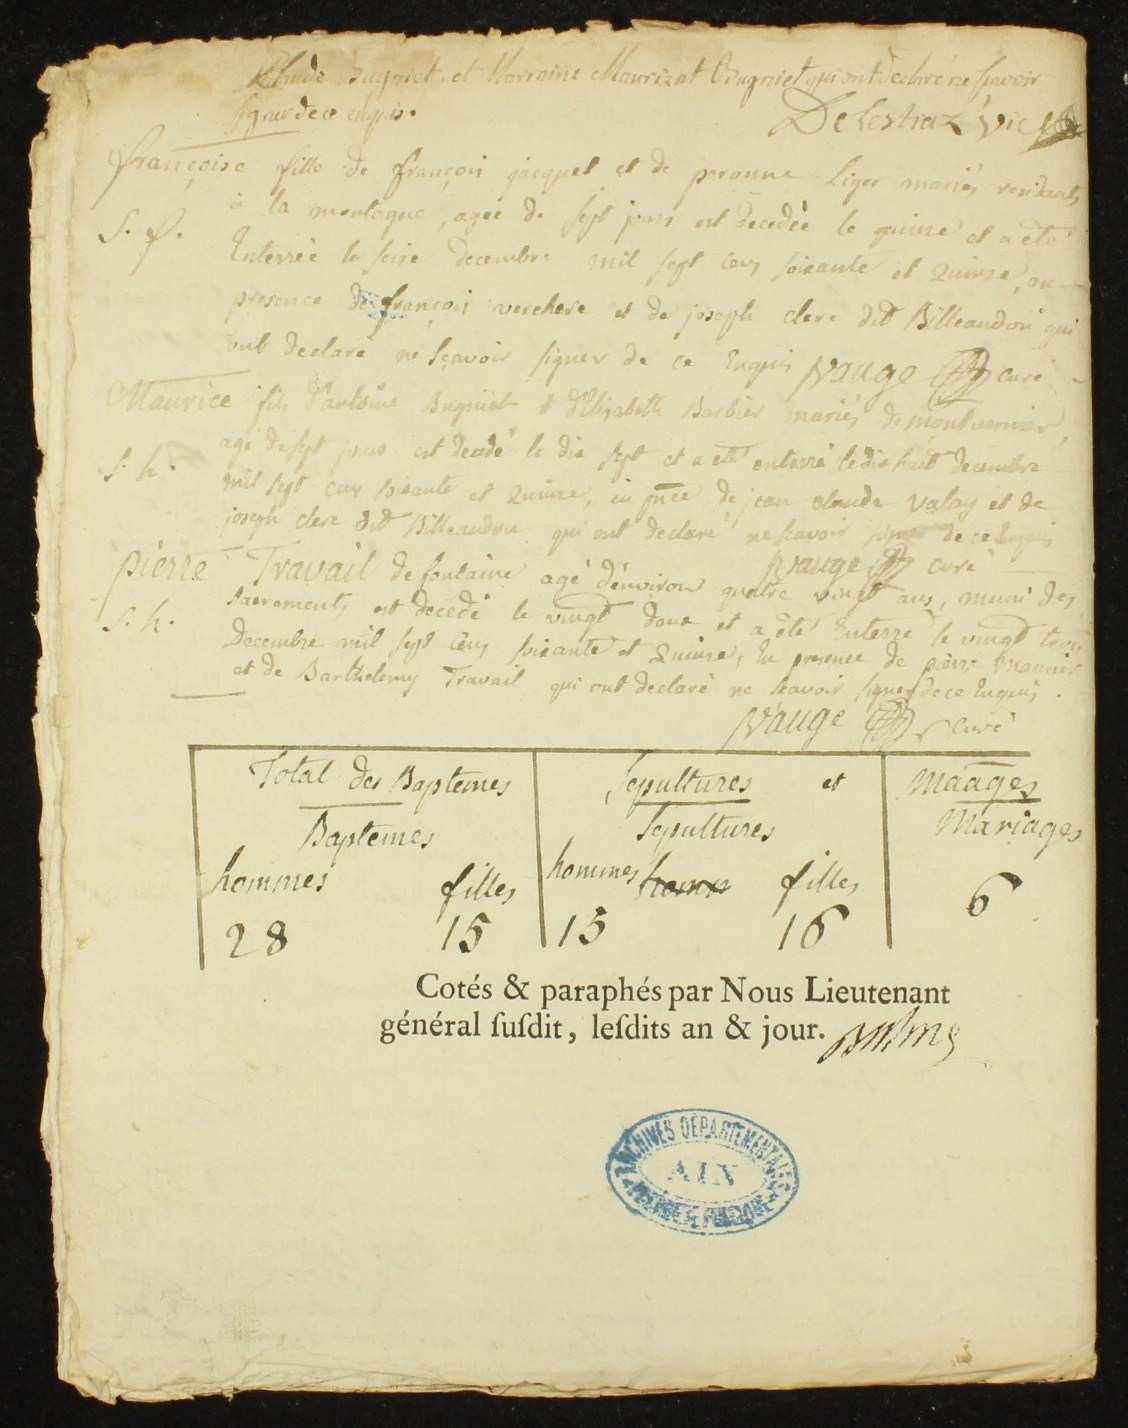 Claude Bugniet et Marraine Maurizat Bugniet qui ont declaré ne sçavoir
signer de ce enquis.
Delestraz Vic
françoise fille de françois jacquet et de peronne Liger mariés residants
à la montagne, agée de sept jours est decedée le quinze et a été
S. f.
Enterrée le seize decembre mil sept cens soixante et Quinze, en
presence de françois verchere et de joseph clerc dit Billeaudon qui
ont declaré ne sçavoir signer de ce Enquis Nauge curé
Maurice fils d'antoine Bugniet et d'Elisabeth Barbier mariés de montvernier,
agé de sept jours est decedé le dix sept et a été enterré le dix huit decembre
S. h.
mil sept cens soixante et Quinze, en pnce de jean claude Valay et de
joseph clerc dit Billeaudon qui ont declaré ne scavoir signer de ce Enquis
Nauge curé
pierre Travail de fontaine agé d'environ quatre vingt ans, muni des
Sacrements est decedé le vingt deux et a été Enterré le vingt trois
S. h.
Decembre mil sept cens soixante et Quinze, En presence de pierre
et de Barthelemy Travail qui ont declaré ne scavoir signer de ce Enquis.
Nauge curé
Total des Baptemes Sepultures et Maages
Baptemes Sepultures Mariages
hommes filles hommes filles
28 15 15 16 6
Cotés & paraphés par Nous Lieutenant
général ſuſdit, leſdits an & jour.
ARCHIVES DÉPARTEMENTALES
AIN